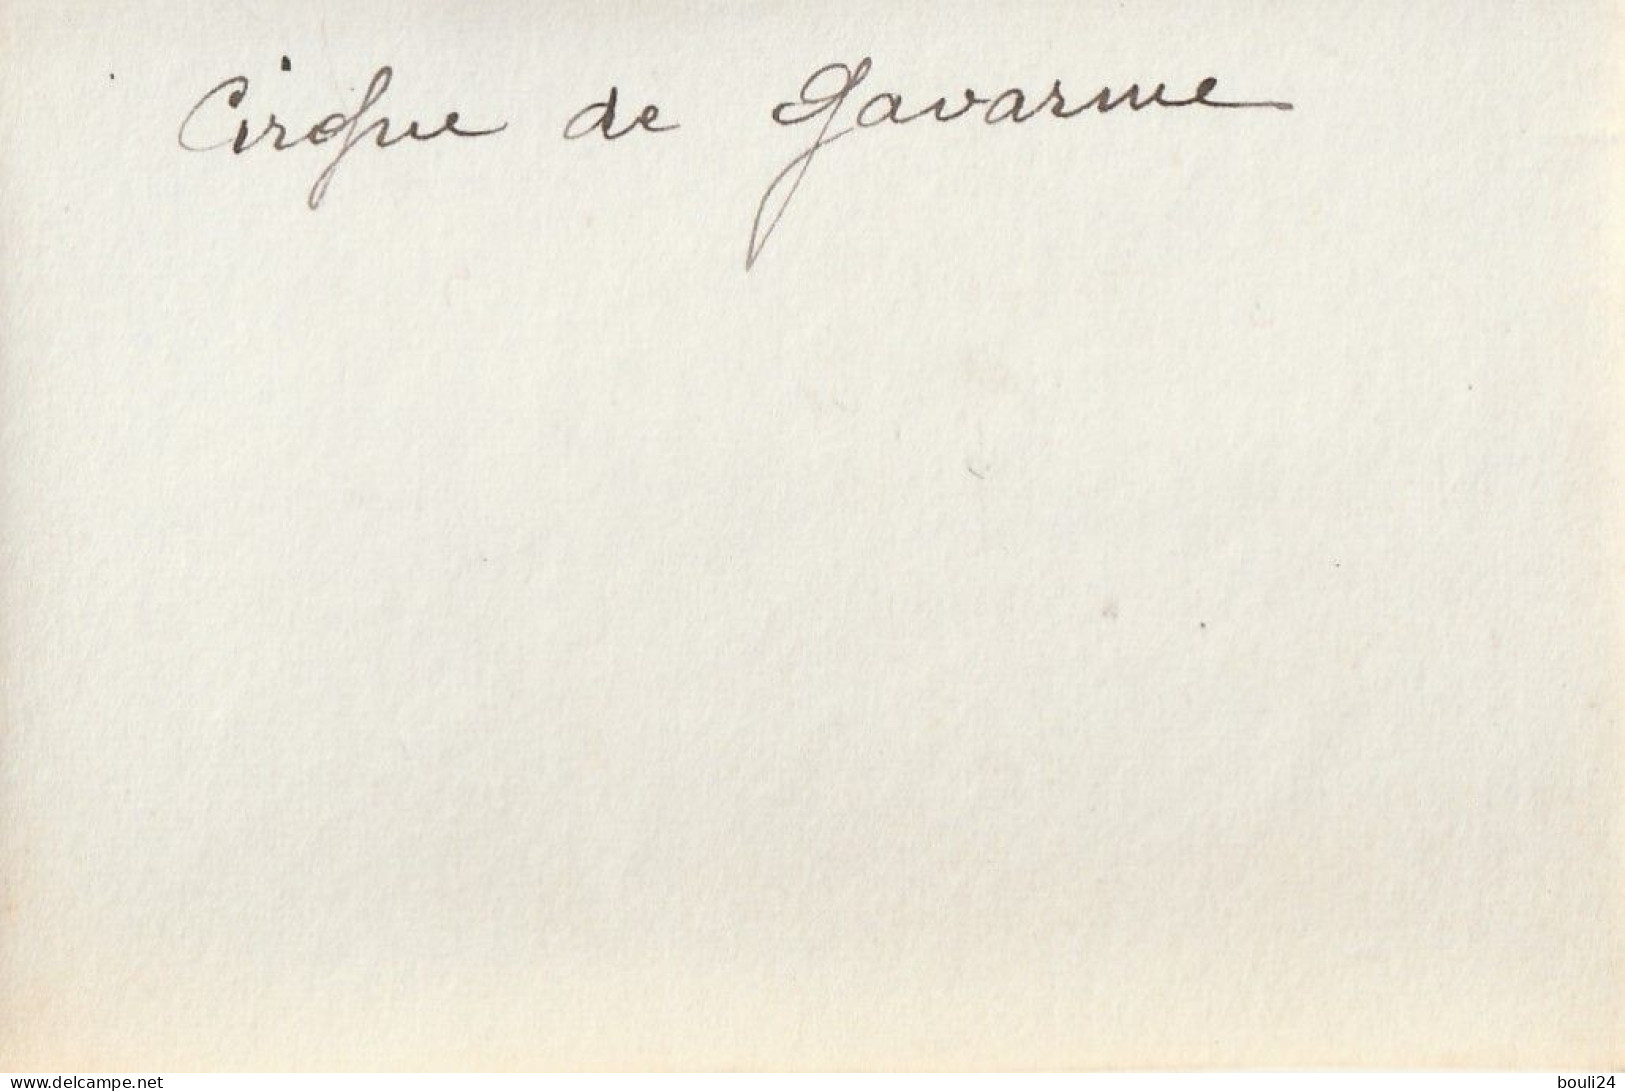 Cirque de Gavarnie
www.delcampe.net
bouli24